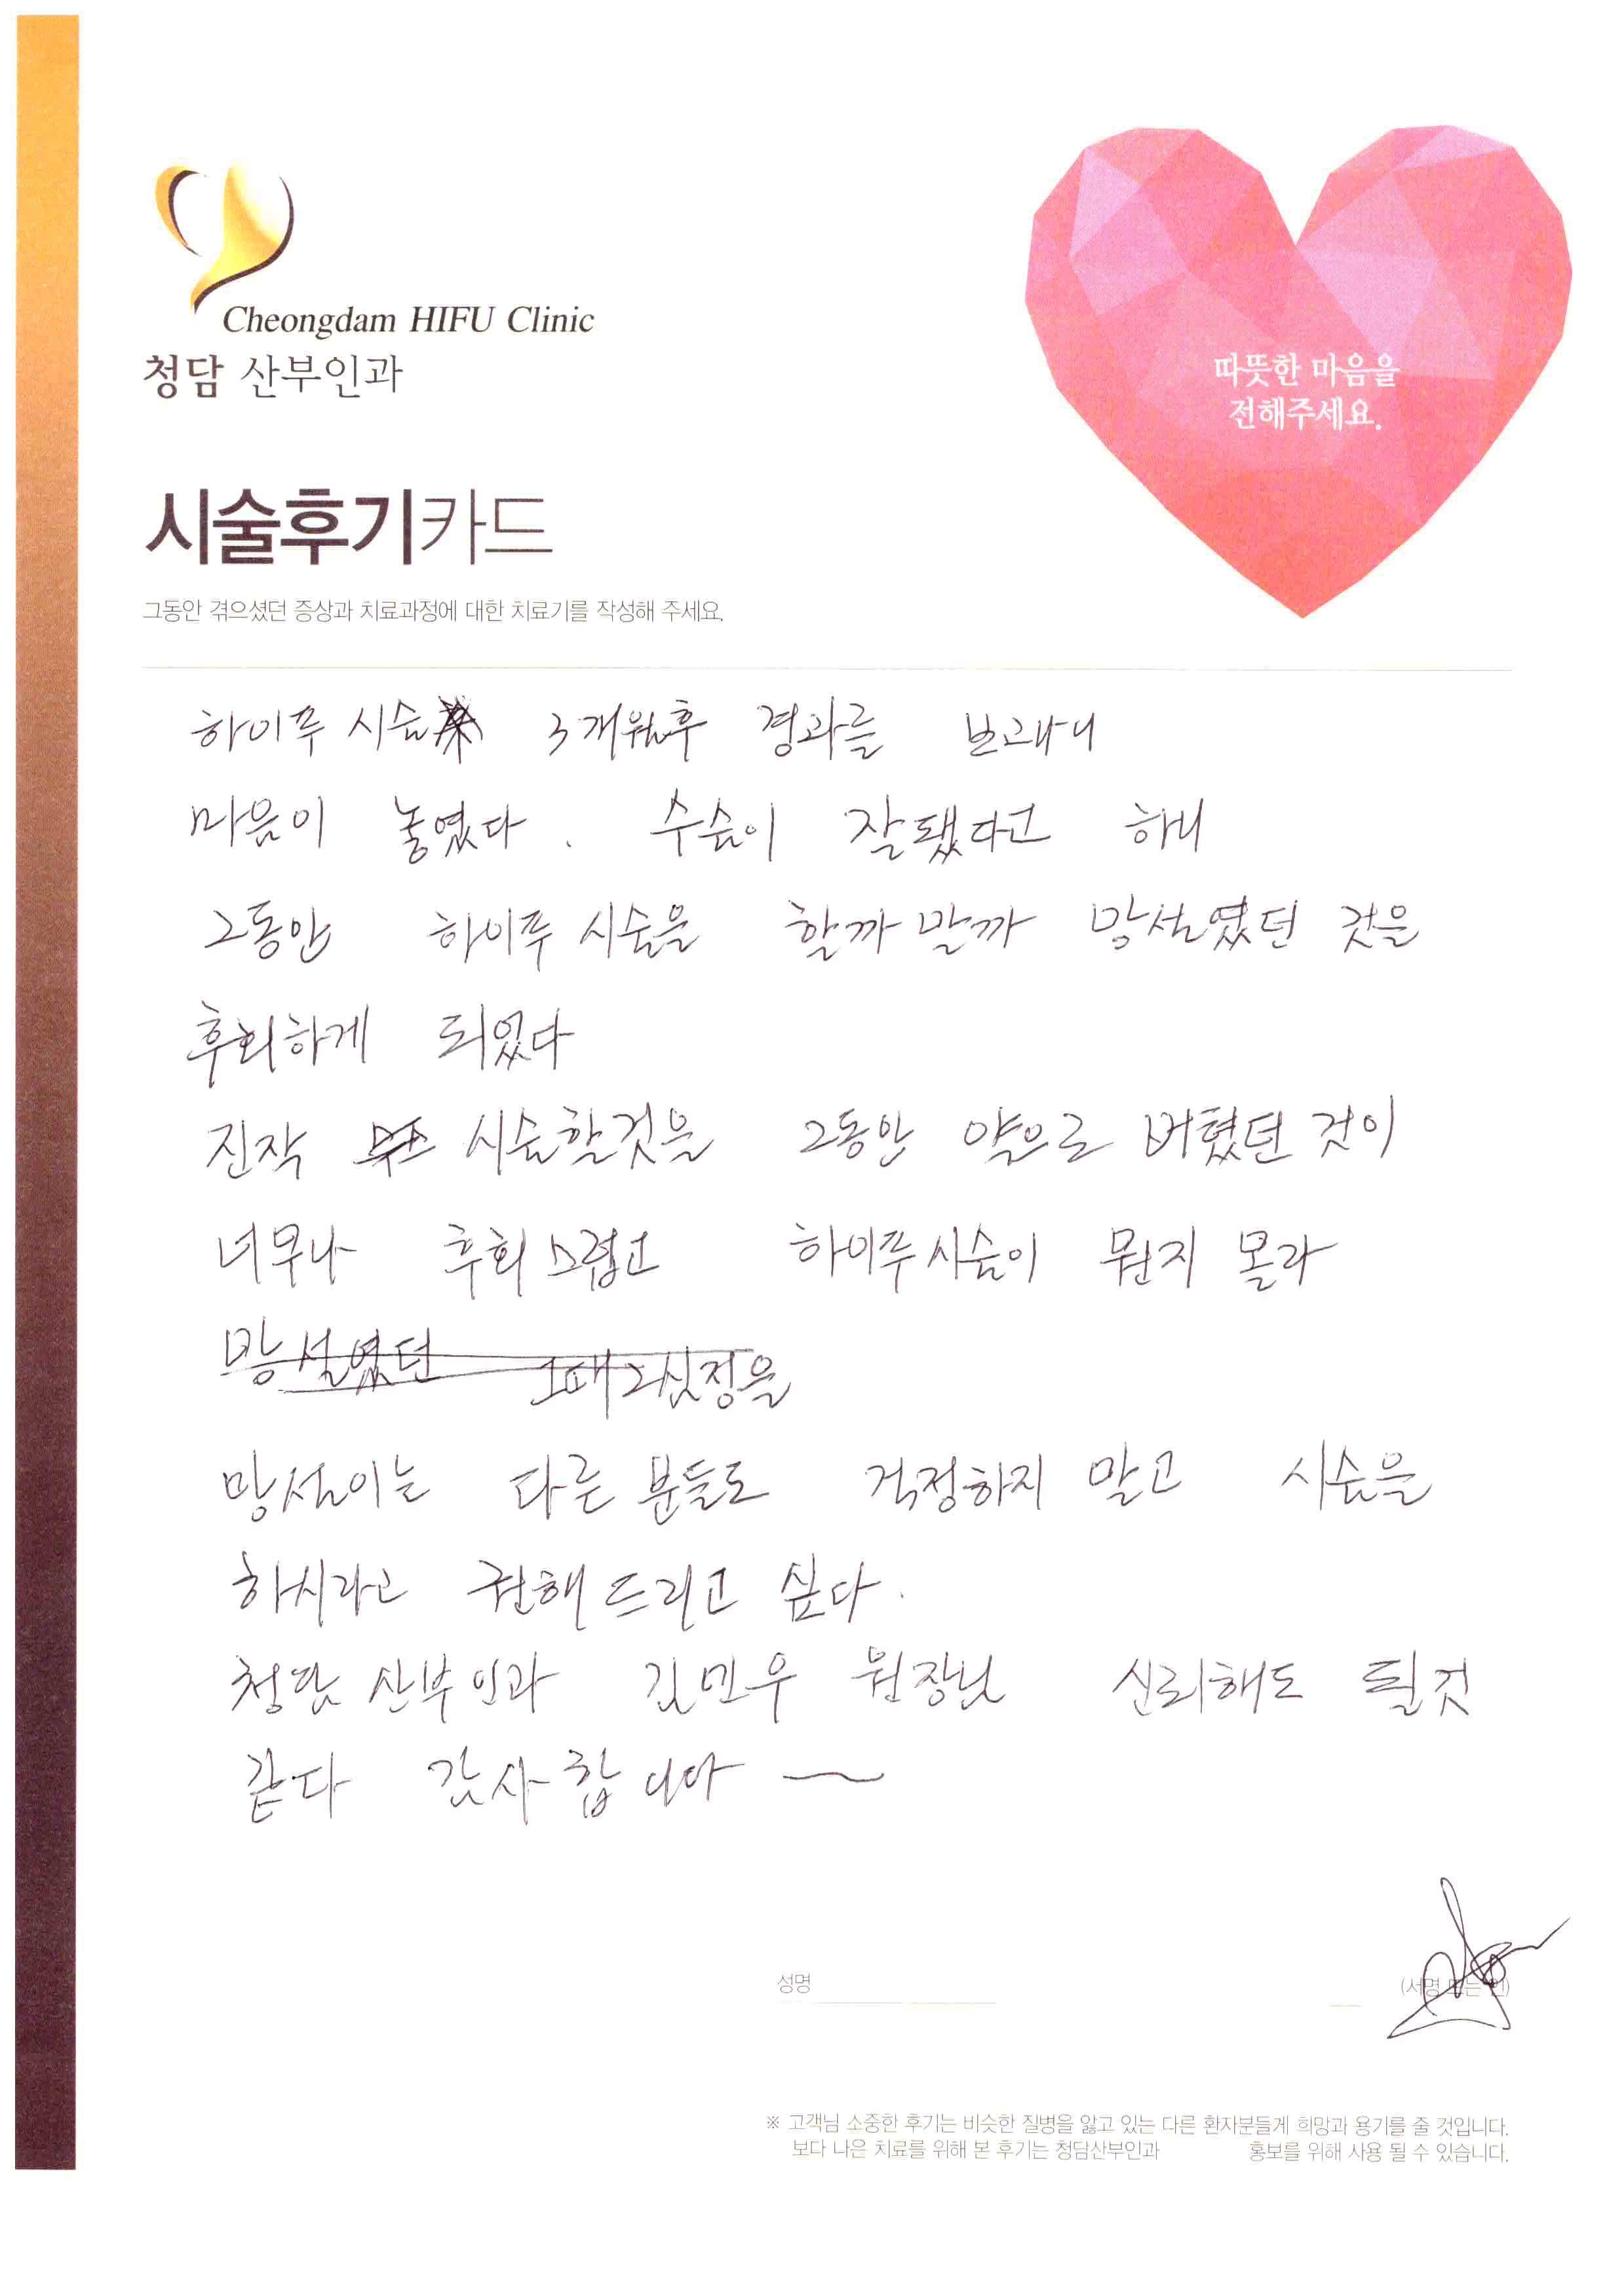 Cheongdam HIFU Clinic
청담 산부인과
따뜻한 마음을
전해주세요.
시술후기카드
그동안 겪으셨던 증상과 치료과정에 대한 치료기를 작성해 주세요.
하이푸 시술 3개월후 경과를 보고나니
마음이 놓였다. 수술이 잘됐다고 하니
그동안 하이푸 시술을 할까 말까 망설였던 것을
후회하게 되었다
진작 시술할것을 그동안 약으로 버텼던 것이
너무나 후회스럽고 하이푸시술이 뭔지 몰라
망설였던 그때 그심정을
망설이는 다른 분들도 걱정하지 말고 시술을
하시라고 권해 드리고 싶다.
청담 산부인과 김민우 원장님 신뢰해도 될것
같다 감사합니다 ~
성명
(서명 또는 인)
※ 고객님 소중한 후기는 비슷한 질병을 앓고 있는 다른 환자분들게 희망과 용기를 줄 것입니다.
보다 나은 치료를 위해 본 후기는 청담산부인과 홍보를 위해 사용 될 수 있습니다.